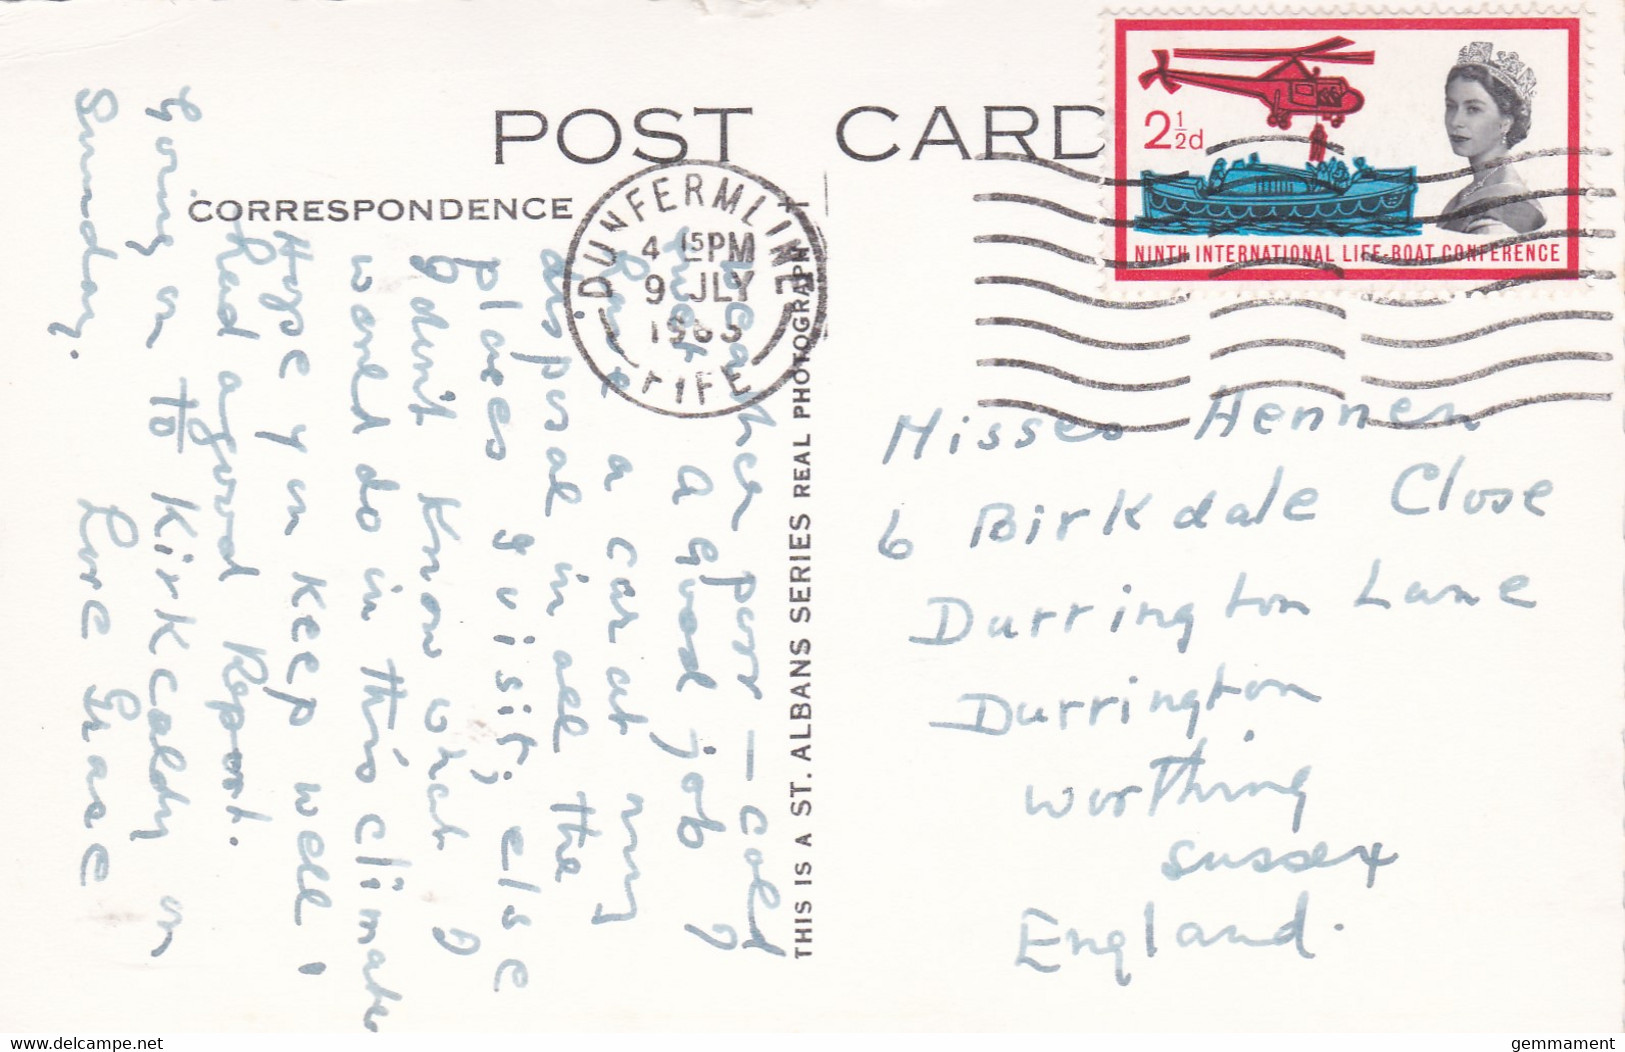 POST CARD
CORRESPONDENCE
DUNFERMLINE
4 15PM
9 JLY
1963
FIFE
2½d
NINTH INTERNATIONAL LIFE-BOAT CONFERENCE
THIS IS A ST. ALBANS SERIES REAL PHOTOGRAPH
Weather poor — cold
Just a good job I
have a car at my
disposal in all the
places I visit; else
I dunit know what I
would do in this climate
Hope you keep well &
had a good Report.
Going on to Kirkcaldy on
Sunday. Love Grace
Misses Hennen
6 Birkdale Close
Durrington Lane
Durrington
Worthing
Sussex
England.
delcampe.net
gemmament